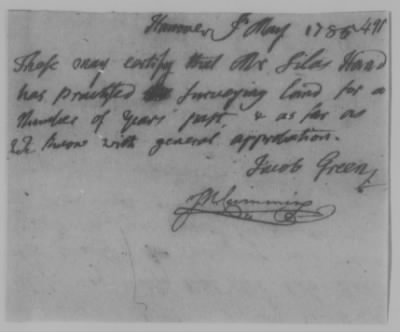 Hanover May 1785 491
These may certify that Mr Silas Hand
has practised Surveying Land for a
Number of Years past, & as far as
We know with general approbation.
Jacob Green